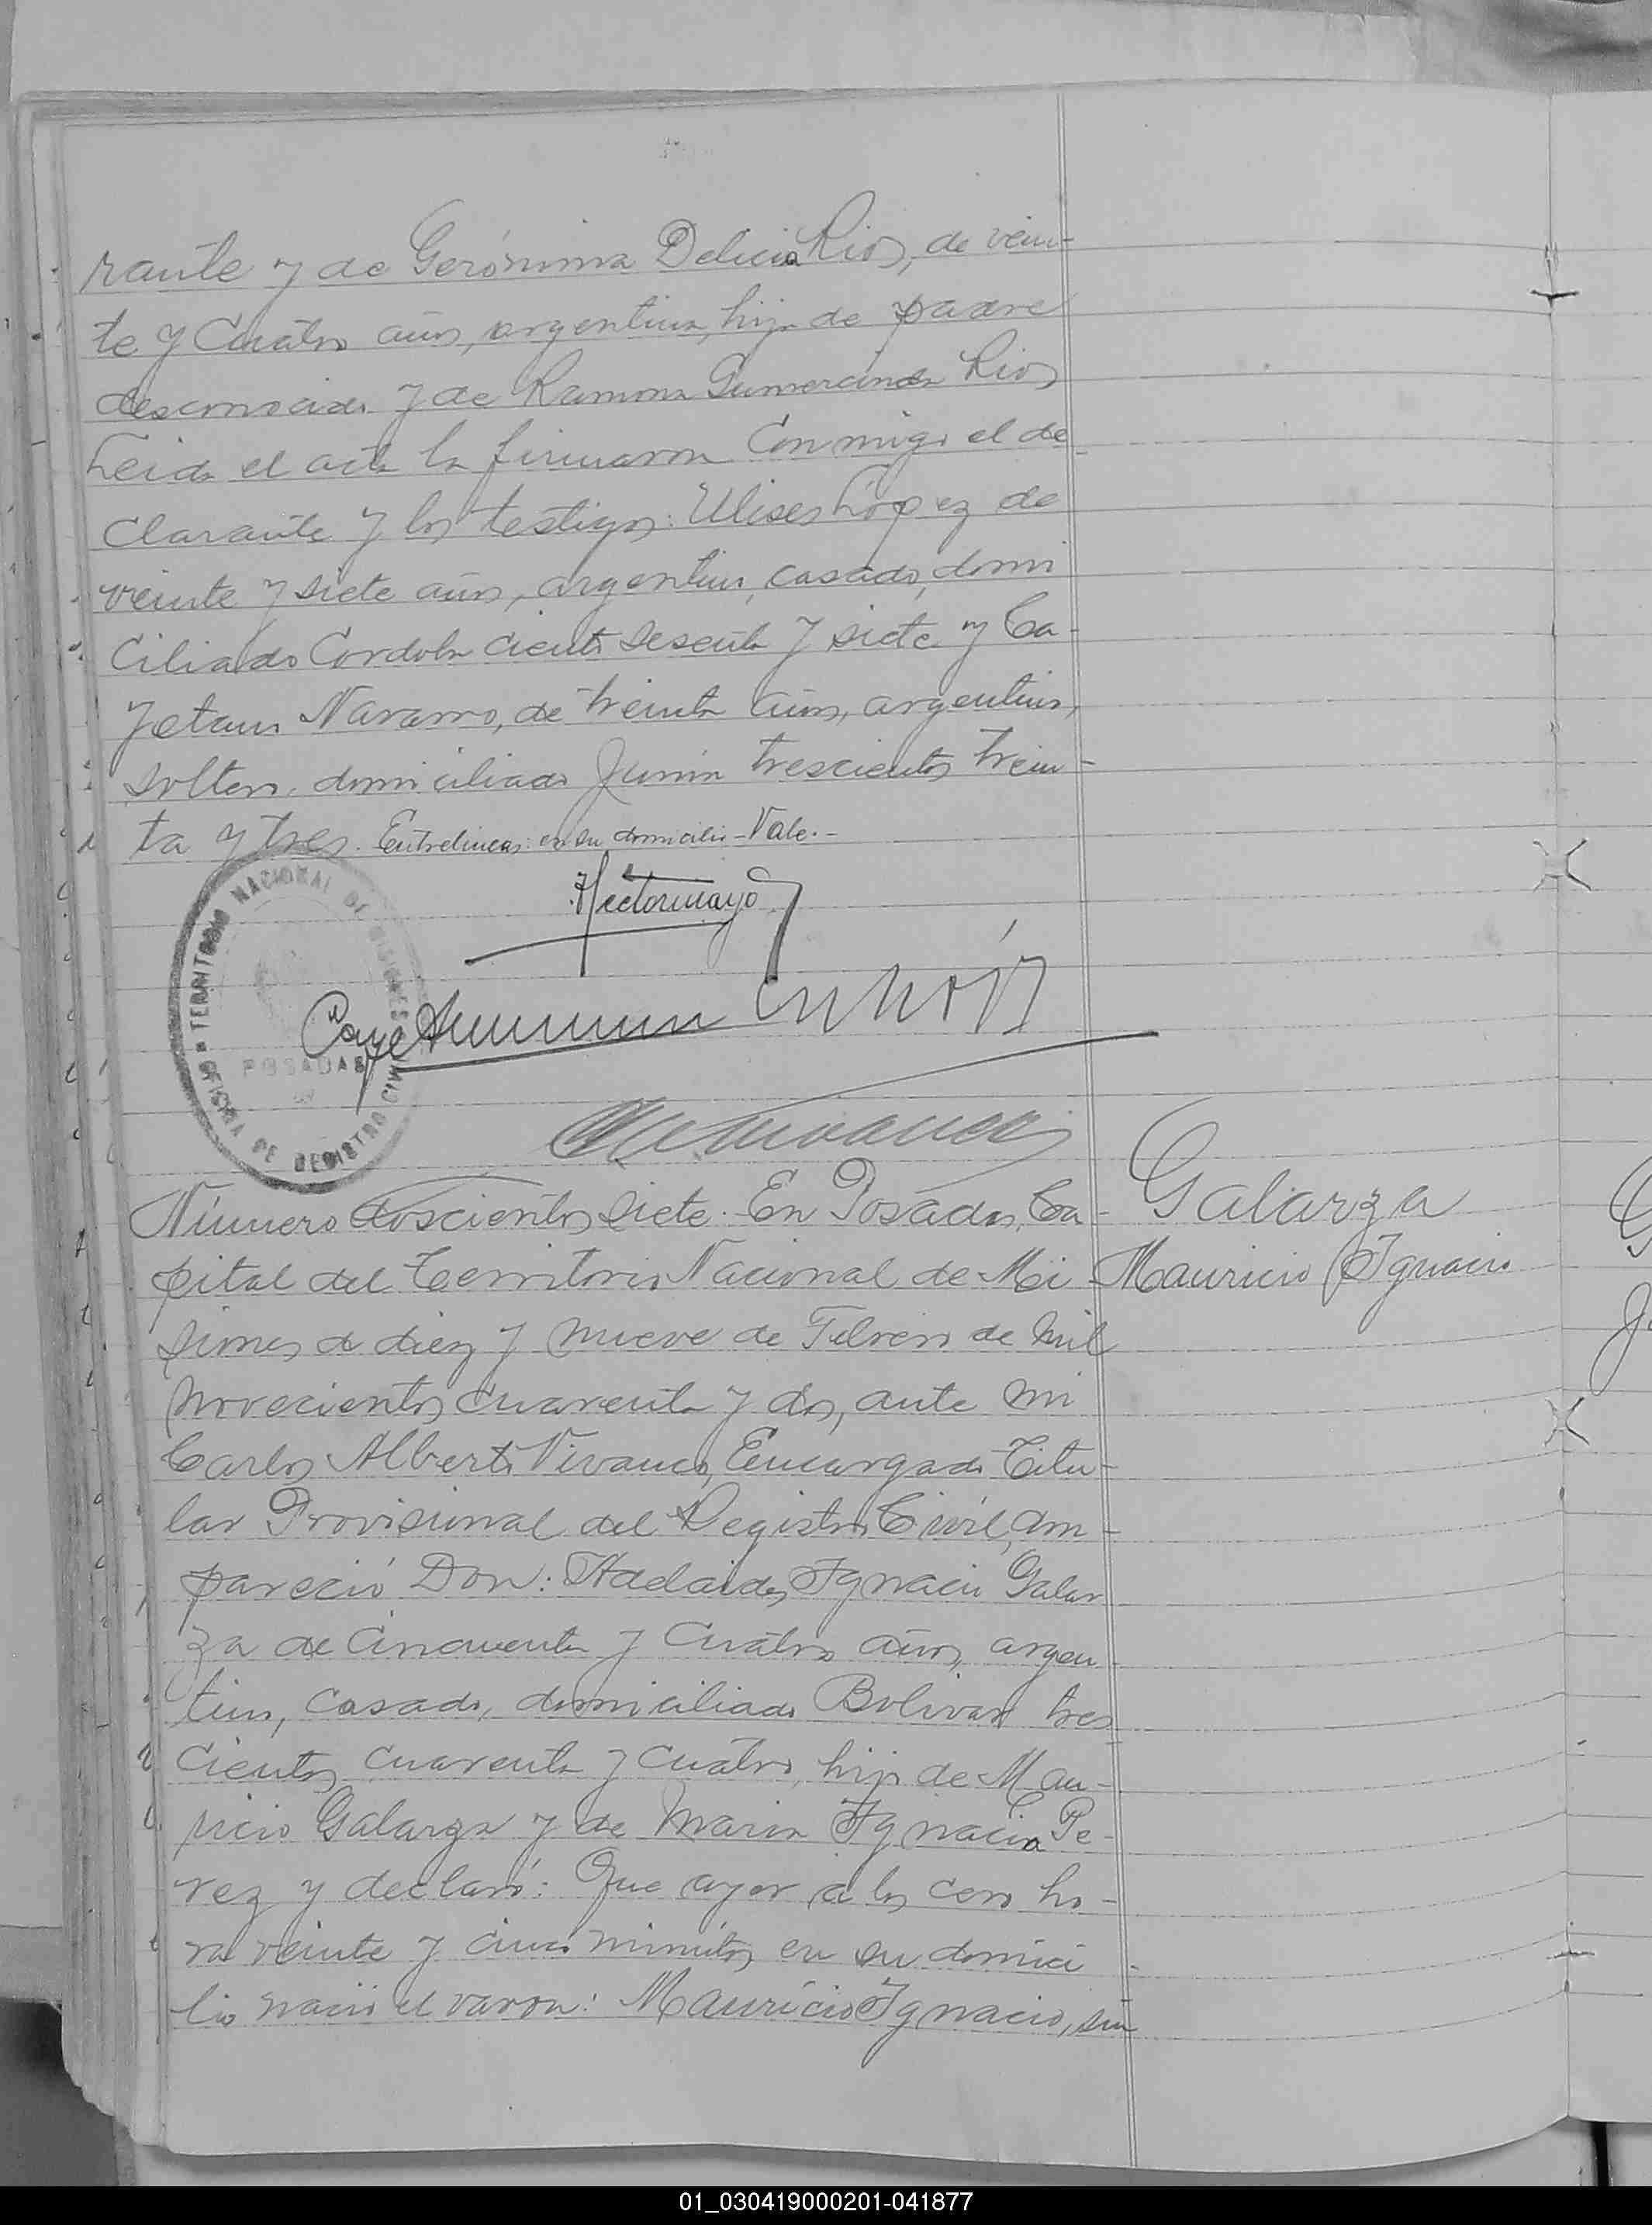 rante y de Gerónima Delicia Rios, de vein-
te y cuatro años, argentina, hija de padre
desconocido y de Ramona Gumercinda Rios
Leida el acta la firmaron conmigo el de
clarante y los testigos: Ulises López de
veinte y siete años, argentino, casado, domi
ciliado Cordoba ciento sesenta y siete y Ca-
yetano Navarro, de treinta años, argentino,
soltero, domiciliado Junin trescientos trein-
ta y tres. Entrelineas: en su domicilio-Vale.-
Hectormayo
TERRITORIO NACIONAL DE MISIONES
POSADAS
OFICINA DE REGISTRO CIVIL
Número doscientos siete. En Posadas, Ca-
pital del Territorio Nacional de Mi
siones a diez y nueve de Febrero de mil
novecientos cuarenta y dos, ante mi
Carlos Alberto Vivanco, Encargado Titu-
lar Provisional del Registro Civil, com-
pareció Don: Adelaides Ignacio Galar
za de cincuenta y cuatro años, argen
tino, casado, domiciliado Bolivar tres
cientos cuarenta y cuatro, hijo de Mau-
ricio Galarza y de Maria Ignacia Pe-
rez y declaró: Que ayer a las cero ho-
ra veinte y cinco minutos en su domici
lio nació el varon: Mauricio Ignacio, sin
Galarza
Mauricio Ignacio
01_030419000201-041877